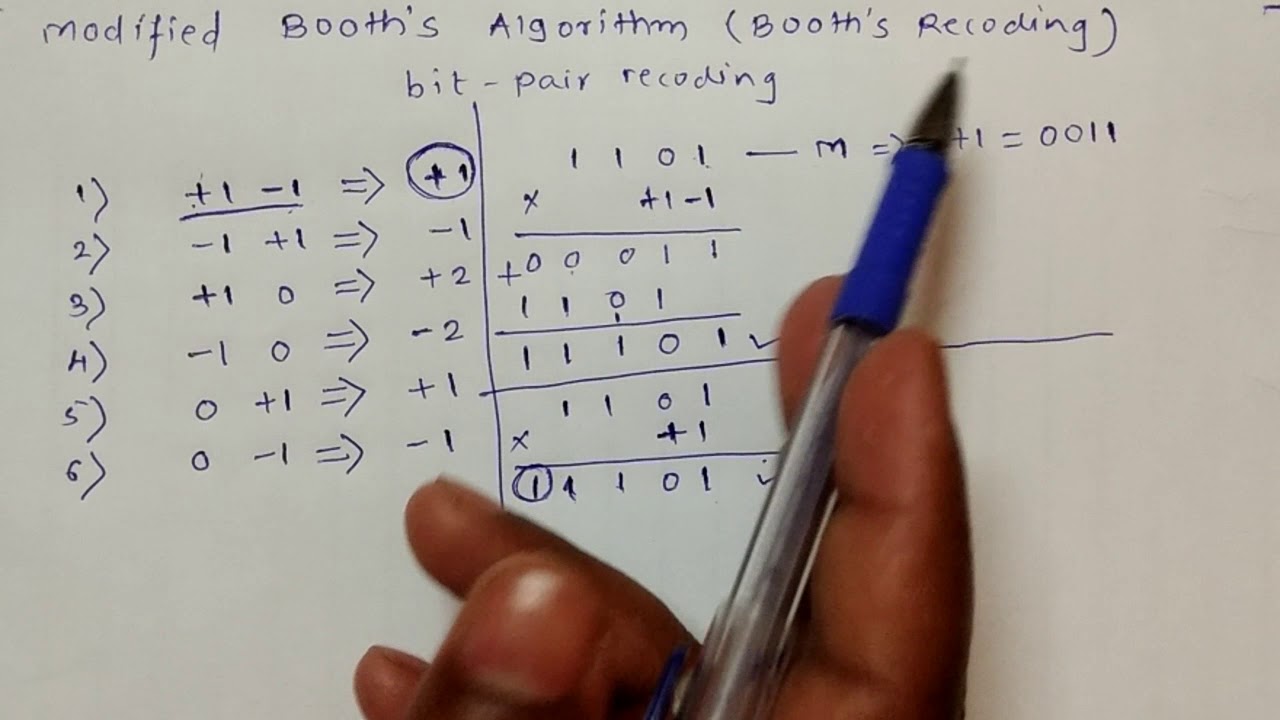 modified Booth's Algorithm (Booth's Recoding)
bit-pair recoding
1) +1 -1 => +1
2) -1 +1 => -1
3) +1 0 => +2
4) -1 0 => -2
5) 0 +1 => +1
6) 0 -1 => -1
1 1 0 1 — m => +1 = 0011
x +1 -1
0 0 0 1 1
+ 1 1 0 1
1 1 1 0 1 ✓
1 1 0 1
x +1
1 1 1 0 1 ✓